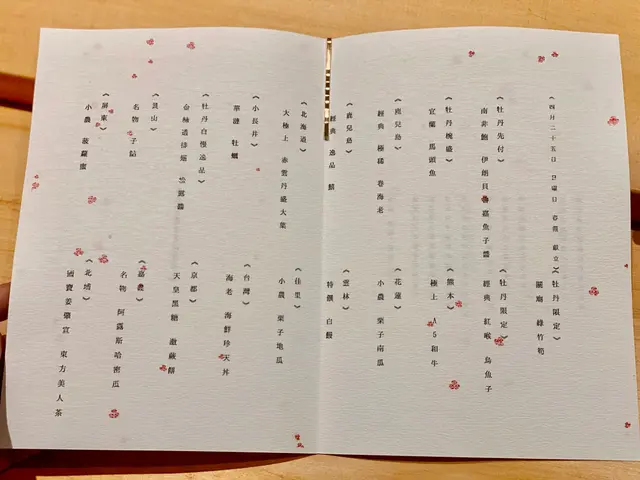 《四月二十五日 日曜日 春燕 獻立》
《牡丹先付》
南非鮑 伊朗貝魯嘉魚子醬
《牡丹椀盛》
宜蘭 馬頭魚
《鹿兒島》
經典 極稀 卷海老
《鹿兒島》
經典 逸品
《牡丹限定》
關廟 綠竹筍
《牡丹限定》
經典 紅喉 烏魚子
《熊本》
極上 A5和牛
《花蓮》
小農 栗子南瓜
《雲林》
特選 白鰻
《北海道》
大極上 赤雲丹盛大葉
《小長井》
華漣 牡蠣
《牡丹自慢逸品》
金極道排翅
名物 子鮎
《屏東》
小農 菠蘿蜜
《佳里》
小農 栗子地瓜
《台灣》
海老 海鮮珍天丼
《京都》
天皇黑糖 蕨餅
《嘉義》
名物 阿露斯哈密瓜
《北埔》
國寶姜肇宣 東方美人茶